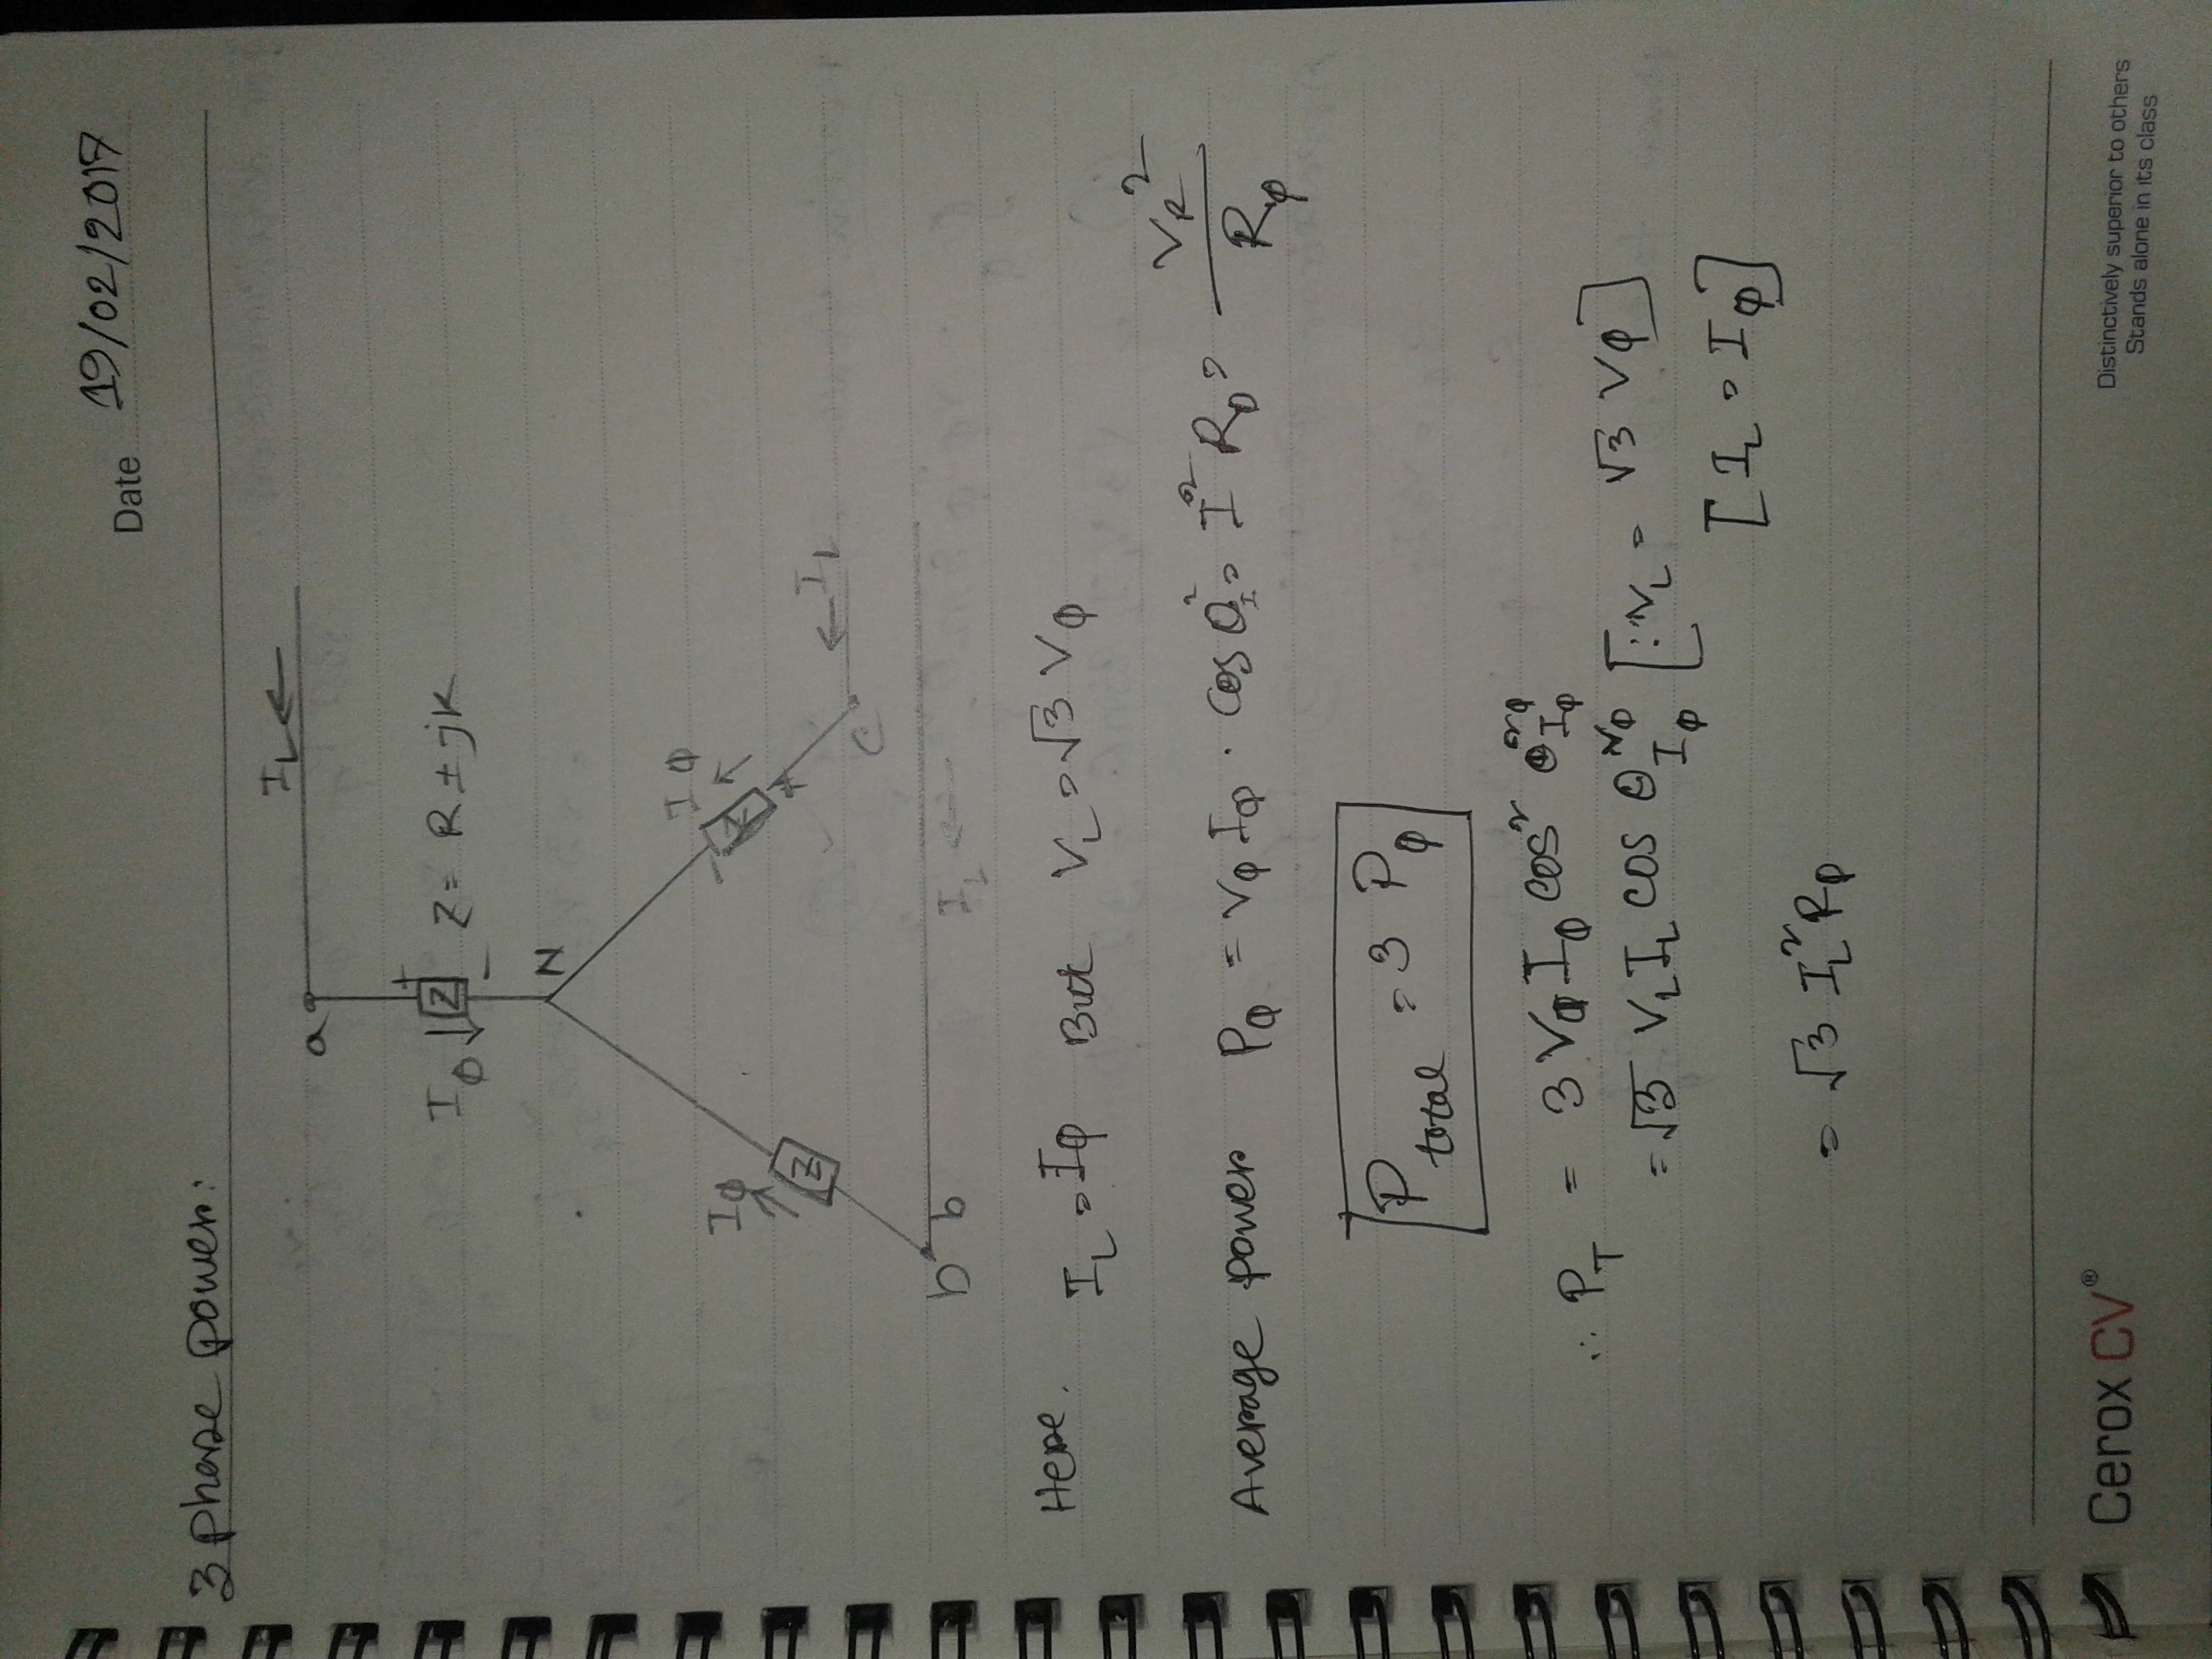 Date 19/02/2017
3 phase power:
I_L ←
a
I_φ ↓ Z Z = R ± jX
+
-
N
I_φ
I_φ
Z
Z
-
+
← I_L
C
b b
I_L ←
Here. I_L = I_φ But V_L = √3 V_φ
Average power P_φ = V_φ I_φ · cos θ = I² R_φ = V_R² / R_φ
P_total = 3 P_φ
∴ P_T = 3 V_φ I_φ cos² θ^{vφ}_{Iφ}
= √3 V_L I_L cos θ^{vφ}_{Iφ} [∵ V_L = √3 V_φ]
[I_L = I_φ]
= √3 I_L² R_φ
Cerox CV®
Distinctively superior to others
Stands alone in its class